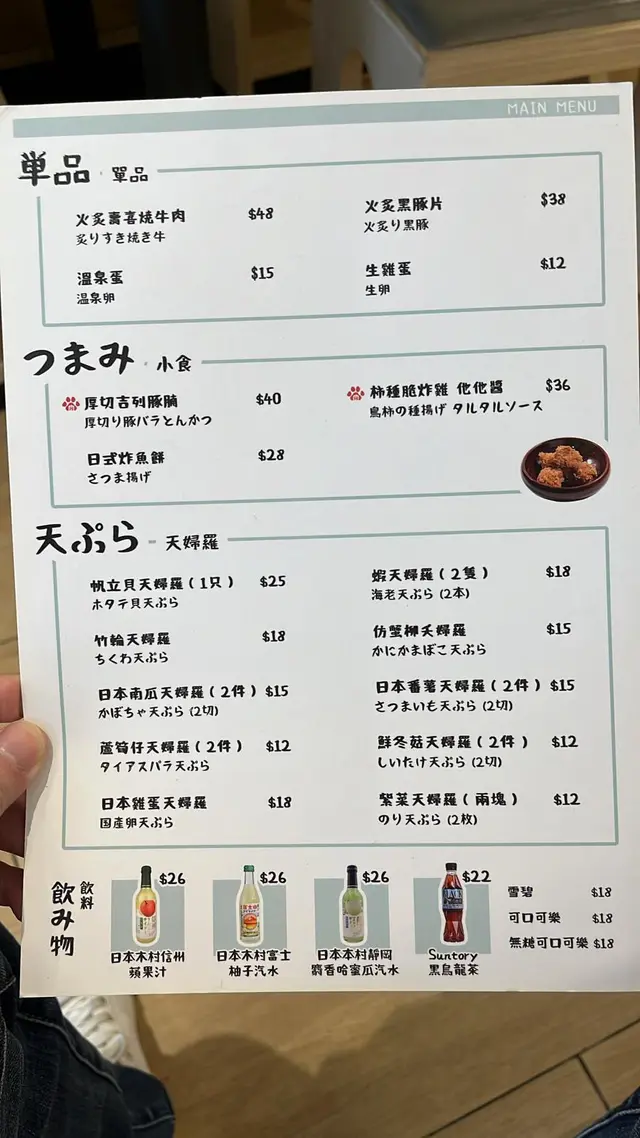 MAIN MENU
単品・單品
火炙壽喜燒牛肉 $48
炙りすき焼き牛
火炙黑豚片 $38
火炙り黒豚
溫泉蛋 $15
温泉卵
生雞蛋 $12
生卵
つまみ・小食
厚切吉列豚腩 $40
厚切り豚バラとんかつ
柿種脆炸雞 他他醬 $36
鳥柿の種揚げ タルタルソース
日式炸魚餅 $28
さつま揚げ
天ぷら - 天婦羅
帆立貝天婦羅(1只) $25
ホタテ貝天ぷら
蝦天婦羅(2隻) $18
海老天ぷら (2本)
竹輪天婦羅 $18
ちくわ天ぷら
仿蟹柳天婦羅 $15
かにかまぼこ天ぷら
日本南瓜天婦羅(2件) $15
かぼちゃ天ぷら (2切)
日本番薯天婦羅(2件) $15
さつまいも天ぷら (2切)
蘆筍仔天婦羅(2件) $12
タイアスパラ天ぷら
鮮冬菇天婦羅(2件) $12
しいたけ天ぷら (2切)
日本雞蛋天婦羅 $18
国産卵天ぷら
紫菜天婦羅(兩塊) $12
のり天ぷら (2枚)
飲み物
飲料
$26
日本木村信州
蘋果汁
$26
日本木村富士
柚子汽水
$26
日本本村靜岡
麝香哈蜜瓜汽水
$22
Suntory
黑烏龍茶
雪碧 $18
可口可樂 $18
無糖可口可樂 $18